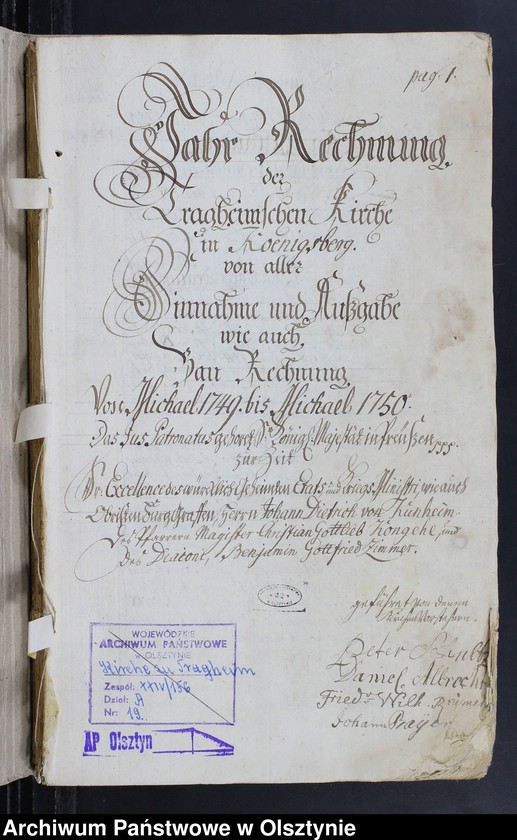 pag. 1.
Jahr Rechnung,
der
Tragheimschen Kirche
in Koenigsberg.
von aller
Einnahme und Außgabe
wie auch
Bau Rechnung
Von Michael 1749. bis Michael 1750.
Das Jus Patronatus gehöret Sr. Königl. Majestät in Preußen
zur Zeit
Sr. Excellence des würcklich Geheimten Etats und Kriegs Ministri, wie auch
Obristen Burggraffen, Herrn Johann Dietrich von Kunheim
Des Pfarrern Magister Christian Gottlieb Kongehl, und
Des Diaconi, Benjamin Gottfried Zimmer.
geführet von denen
Kirchen Vorstehern.
Peter
Daniel Albrecht
Friedr. Wilh.
Johann
WOJEWÓDZKIE
ARCHIWUM PAŃSTWOWE
w OLSZTYNIE
Kirche zu Tragheim
Zespół: XXIV/156
Dział: A
Nr: 19.
AP Olsztyn
Archiwum Państwowe w Olsztynie